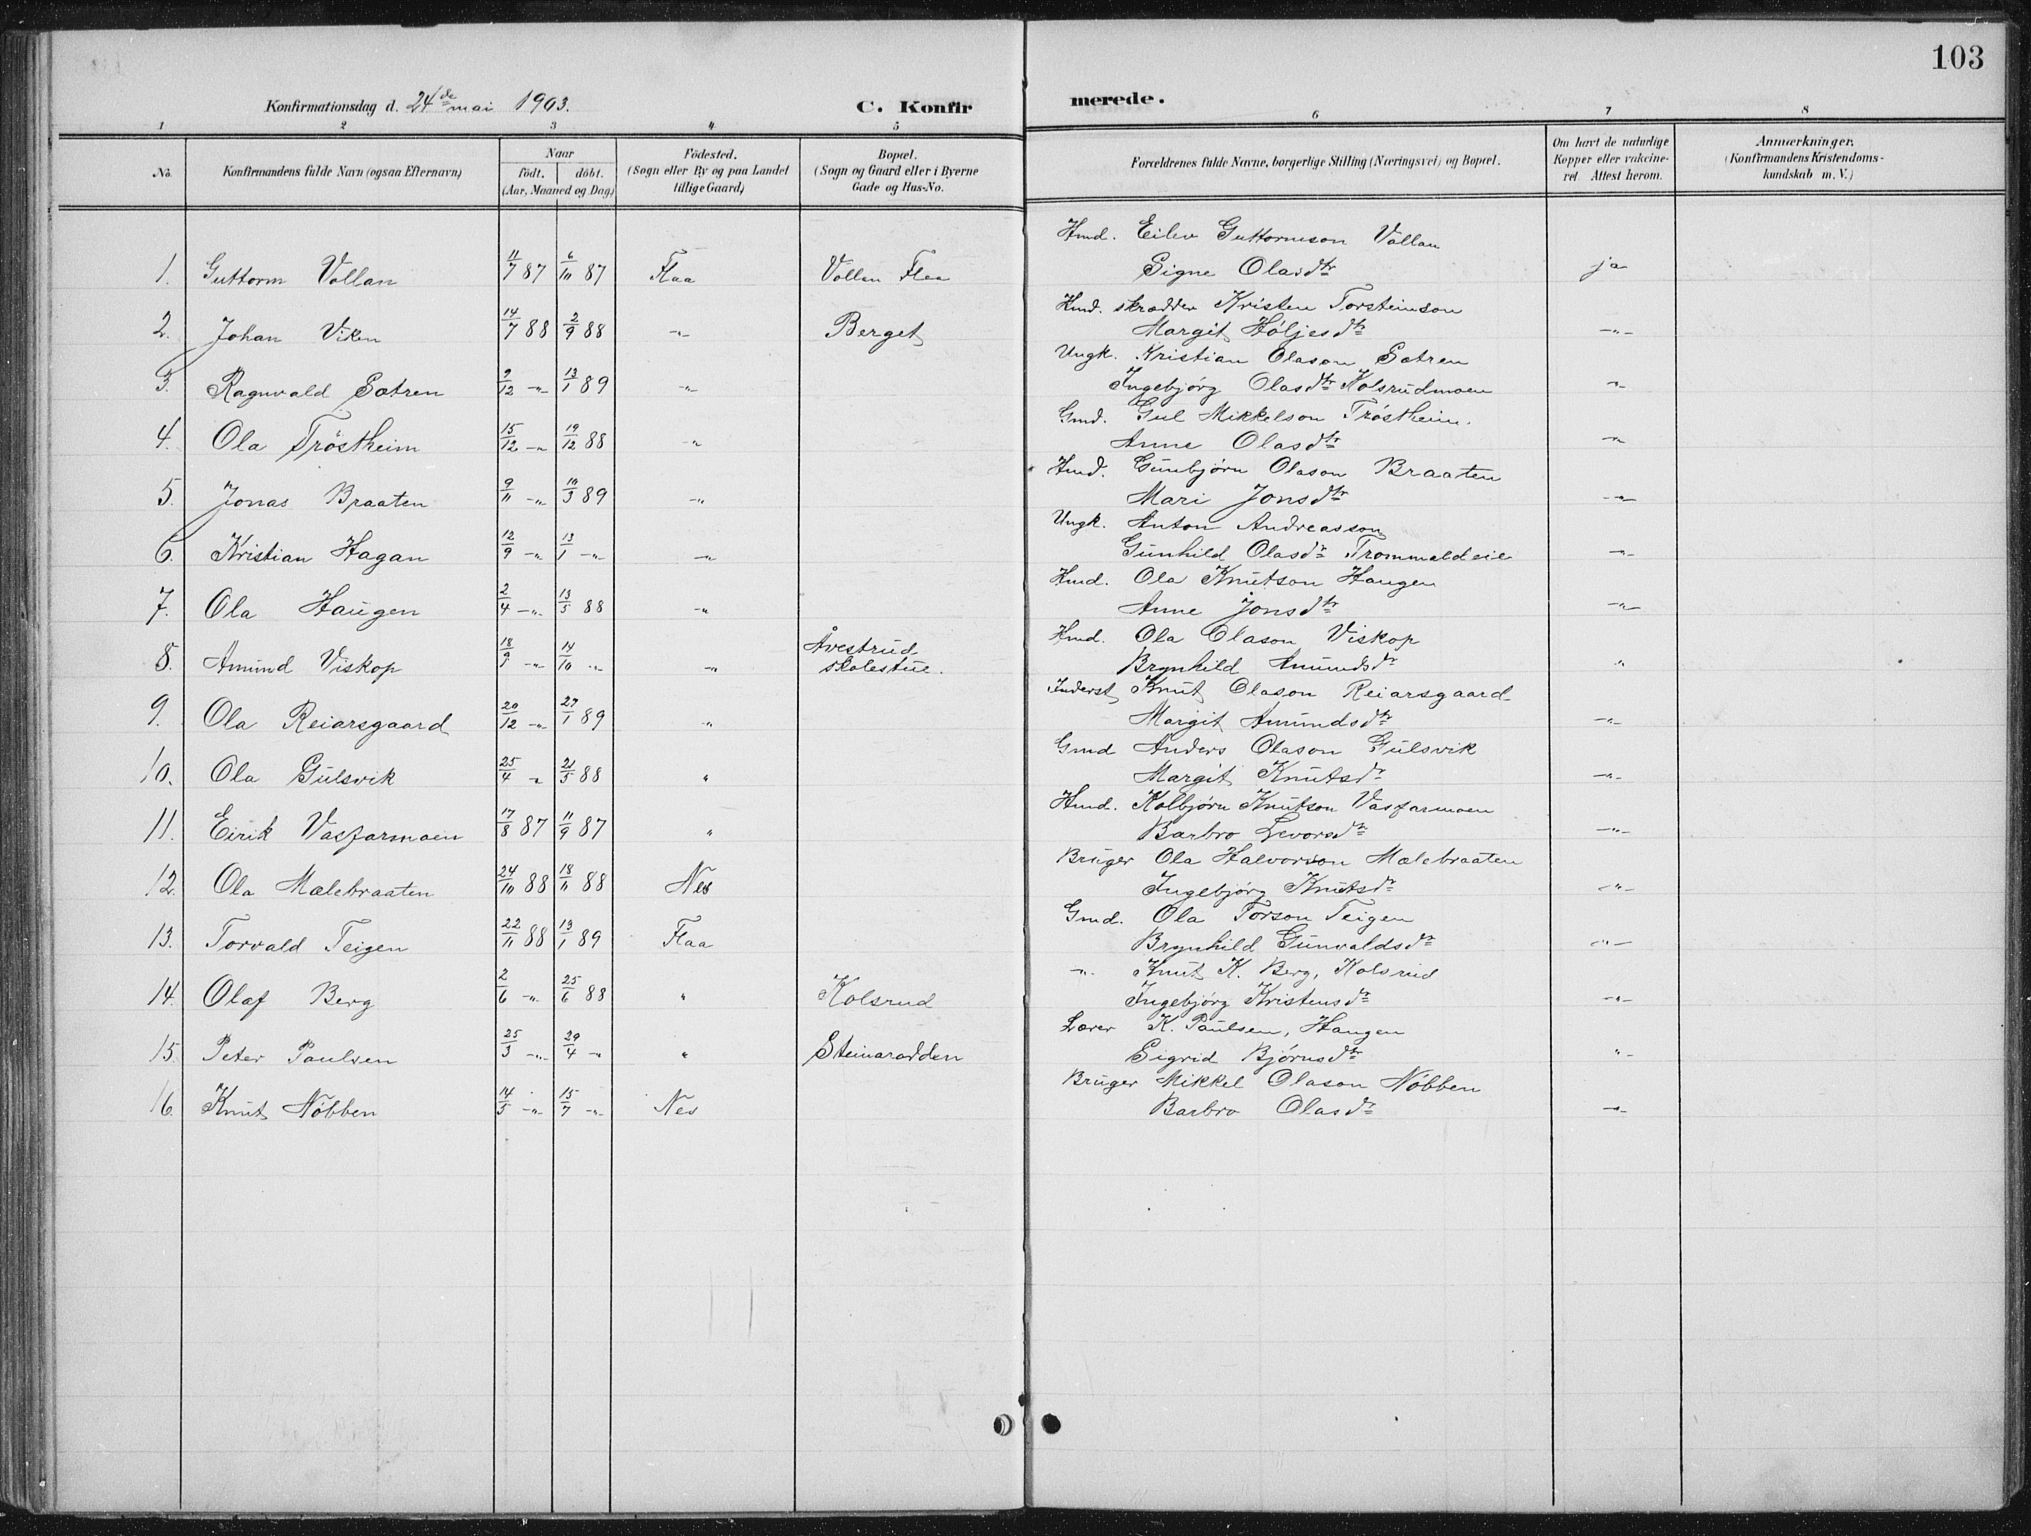 103
Konfirmationsdag d. 24de mai 1903.
C. Konfirmerede.
1 2 3 4 5 6 7 8
No. Konfirmandens fulde Navn (ogsaa Efternavn) Naar födt. döbt. (Aar, Maaned og Dag) Födested. (Sogn eller By og paa Landet tillige Gaard) Bopæl. (Sogn og Gaard eller i Byerne Gade og Hus-No. Forældrenes fulde Navne, borgerlige Stilling (Næringsvei) og Bopæl. Om havt de naturlige Kopper eller vakcineret. Attest herom. Anmærkninger. (Konfirmandens Kristendomskundskab m. V.)
Hmd. Eilev Guttormson Vollan
1. Guttorm Vollan 11/7 87 6/10 87 Flaa Vollan Flaa Signe Olasdtr ja
Hmd. skrædder Kristen Torsteinson
2. Johan Viken 14/7 88 2/9 88 -"- Berget Margit Höljesdtr -"-
Ungk. Kristian Olason Sætren
3. Ragnvald Sætren 2/12 -"- 13/1 89 -"- Ingebjørg Olasdtr Kolsrudmoen -"-
Gmd. Gul Mikkelson Tröstheim.
4. Ola Tröstheim 15/12 -"- 19/12 88 -"- Anne Olasdtr -"-
Hmd. Gunbjørn Olason Braaten
5. Jonas Braaten 9/11 -"- 10/3 89 -"- Mari Jonsdtr -"-
Ungk. Anton Andreasson
6. Kristian Hagan 12/9 -"- 13/1 -"- -"- Gunhild Olasdr Trommaldeie -"-
Hmd. Ola Knutson Haugen
7. Ola Haugen 2/4 -"- 13/5 88 -"- Anne Jonsdtr -"-
Hmd. Ola Olason Viskop
8. Amund Viskop 18/9 -"- 14/10 -"- -"- Åvestrud skolestue. Brynhild Amundsdr "
Inderst Knut Olason Reiarsgaard
9. Ola Reiarsgaard 20/12 -"- 27/1 89 -"- Margit Amundsdtr -"-
Gmd Anders Olason Gulsvik
10. Ola Gulsvik 25/4 " 21/5 88 " Margit Knutsdr -"-
Hmd. Kolbjørn Knutson Vasfarmoen
11. Eirik Vasfarmoen 17/8 87 11/9 87 " Barbro Levorsdtr -"-
Bruger Ola Halvorson Mælebraaten
12. Ola Mælebraaten 24/10 88 18/11 88 Nes Ingebjørg Knutsdr -"-
Gmd. Ola Torson Teigen
13. Torvald Teigen 22/11 88 13/1 89 Flaa Brynhild Gunvaldsdr -"-
-"- Knut K. Berg, Kolsrud
14. Olaf Berg 2/6 -"- 25/6 88 " Kolsrud Ingebjørg Kristensdr -"-
Lærer K. Paulsen, Haugen
15. Peter Paulsen 25/3 -"- 29/4 -"- " Steinarodden Sigrid Bjørnsdtr "-
Bruger Mikkel Olason Nöbben
16. Knut Nöbben 14/5 -"- 15/7 -"- Nes Barbro Olasdr -"-